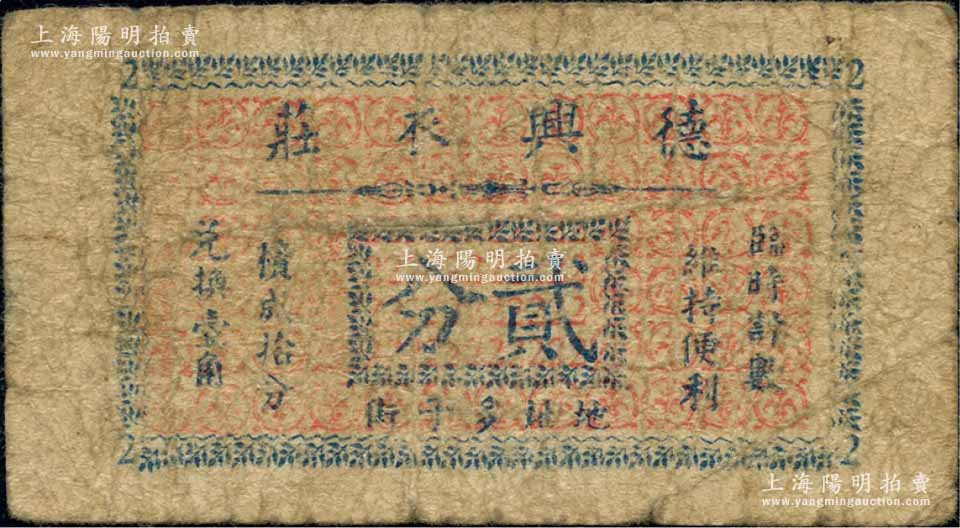 上海陽明拍賣
www.yangmingauction.com
2
2
德興永莊
臨時計數
維持便利
貳分
積成拾分
兌換壹角
上海陽明拍賣
www.yangmingauction.com
街于多 地
2
2
上海陽明拍賣
www.yangmingauction.com